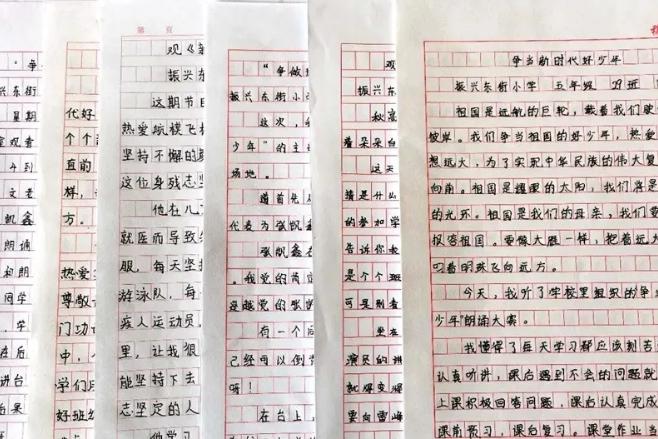 "争
兴东街
星期
宣观者
今到
文老
凯鑫
朗诵
和朗
同学
，学
在后
讲台
后果
代好
个个
直前
样，
方。
热爱
尊敬
门功
中，
学们
好班
第 页
观《
振兴东
这期节目
热爱航模飞
坚持不懈的
这位身残志坚
他在儿
就医而导致
服，每天坚持
游泳队，每
疾人运动员。
里，让我狠
能坚持下去
志坚定的人
他学习
"争做
振兴东街小
这次，
少年"的主
场地。
首先
代表为张帆鑫
张帆鑫在
。我党的
是越党的张
有一个
已经可以倒
呀！
在台上，
观
振兴
秋高
着朵朵白
这天
猜是什
的参加学
告诉你
是个个班
可是别看
坐在
演员的讲
就像
要向雷锋
争当新时代好少年
振兴东街小学 五年级 29班
祖国是远航的巨轮，载着我们驶
彼岸。我们争当祖国的好少年，热爱
想远大，为了实现中华民族的伟大复
向前。祖国是耀眼的太阳，我们将是
的光环。祖国是我们的母亲，我们要
报答祖国。要像大雁一样，把着远大
叼着明珠飞向远方。
今天，我听了学校里组织的争
少年"朗诵大赛。
我懂得了每天学习都应该刻苦
认真听讲，课后遇到不会的问题就
上课积极回答问题，课后认真完成
课前预习，课后复习。课堂作业当